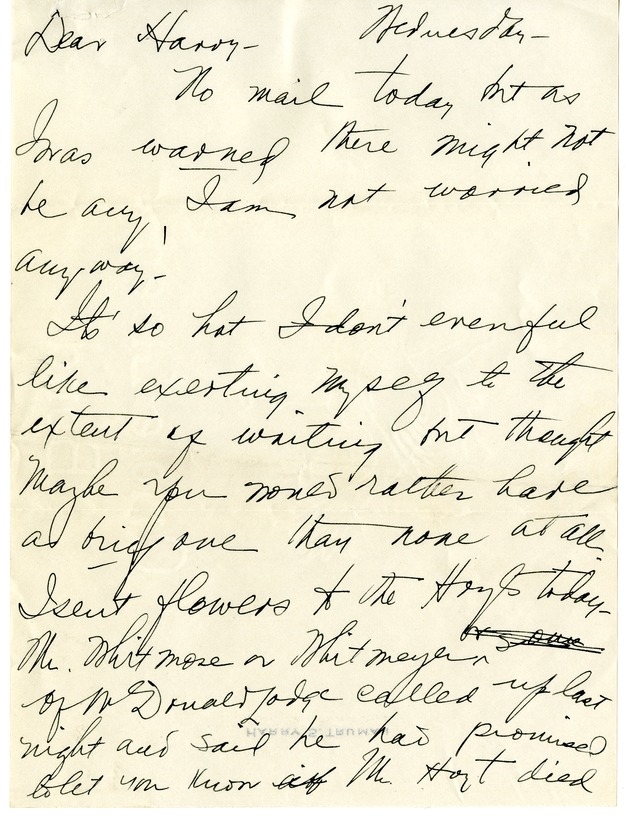 Dear Harry- Wednesday-
No mail today but as
I was warned there might not
be any, I am not worried
anyway!-
It's so hot I don't even feel
like exerting myself to the
extent of writing but thought
maybe you would rather have
a brief one than none at all.
I sent flowers to the Hoyts today-
Mr. Whitmore or Whitmeyer
of McDonald Lodge called up last
night and said he had promised
to let you know if Mr. Hoyt died
HARRY S. TRUMAN